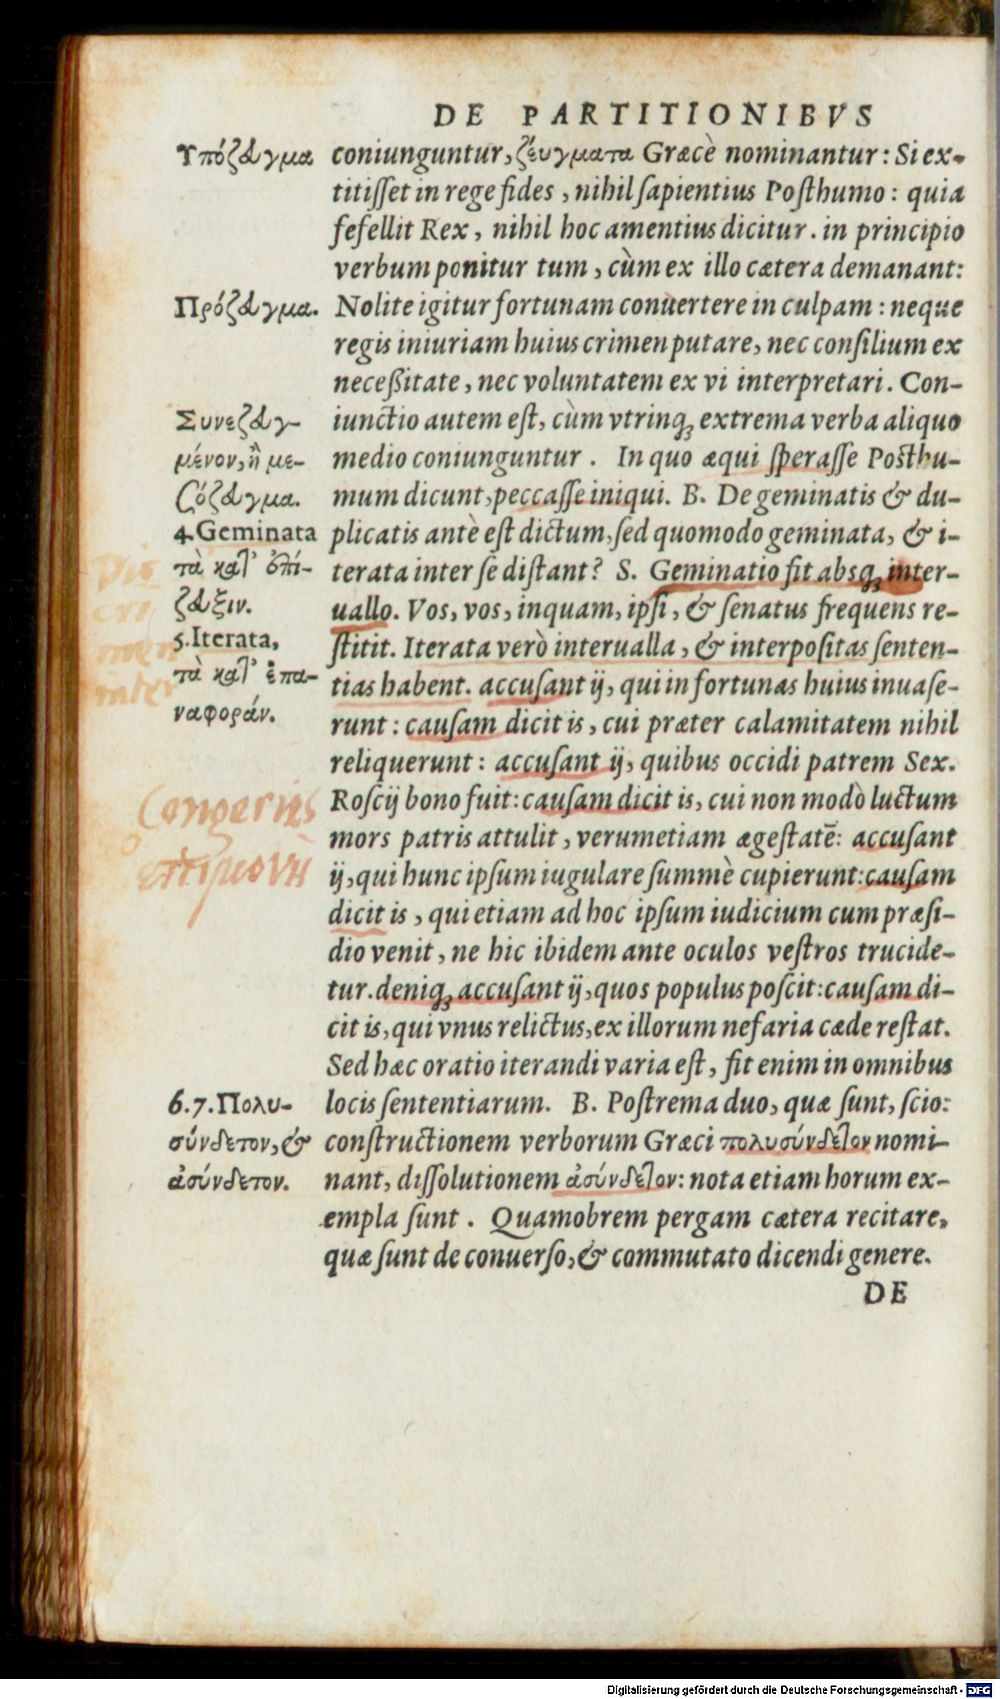 DE PARTITIONIBVS
Υπόζευγμα
coniunguntur, ζεύγματα Græcè nominantur: Si ex-
titiſſet in rege fides, nihil ſapientius Poſthumo: quia
fefellit Rex, nihil hoc amentius dicitur. in principio
verbum ponitur tum, cùm ex illo cætera demanant:
Πρόζευγμα.
Nolite igitur fortunam conuertere in culpam: neque
regis iniuriam huius crimen putare, nec conſilium ex
neceßitate, nec voluntatem ex vi interpretari. Con-
Συνεζευγ-
μένον, ἢ με-
ζόζευγμα.
iunctio autem eſt, cùm vtrinq; extrema verba aliquo
medio coniunguntur. In quo æqui ſperaſſe Poſthu-
mum dicunt, peccaſſe iniqui. B. De geminatis & du-
4. Geminata
τὰ κατ' ἐπί-
ζευξιν.
plicatis antè eſt dictum, ſed quomodo geminata, & i-
terata inter ſe diſtant? S. Geminatio fit absq; inter-
uallo. Vos, vos, inquam, ipſi, & ſenatus frequens re-
5. Iterata,
τὰ κατ' ἐπα-
ναφοράν.
ſtitit. Iterata verò interualla, & interpoſitas ſenten-
tias habent. accuſant ij, qui in fortunas huius inuaſe-
runt: cauſam dicit is, cui præter calamitatem nihil
reliquerunt: accuſant ij, quibus occidi patrem Sex.
Roſcij bono fuit: cauſam dicit is, cui non modò luctum
mors patris attulit, verumetiam ægeſtatē: accuſant
ij, qui hunc ipſum iugulare ſummè cupierunt: cauſam
dicit is, qui etiam ad hoc ipſum iudicium cum præſi-
dio venit, ne hic ibidem ante oculos veſtros trucide-
tur. deniq; accuſant ij, quos populus poſcit: cauſam di-
cit is, qui vnus relictus, ex illorum nefaria cæde reſtat.
Sed hæc oratio iterandi varia eſt, fit enim in omnibus
6.7. Πολυ-
σύνδετον, &
ἀσύνδετον.
locis ſententiarum. B. Poſtrema duo, quæ ſunt, ſcio:
conſtructionem verborum Græci πολυσύνδετον nomi-
nant, diſſolutionem ἀσύνδετον: nota etiam horum ex-
empla ſunt. Quamobrem pergam cætera recitare,
quæ ſunt de conuerſo, & commutato dicendi genere.
DE
Dis
cri
men
inter
Congeries
Digitalisierung gefördert durch die Deutsche Forschungsgemeinschaft - DFG